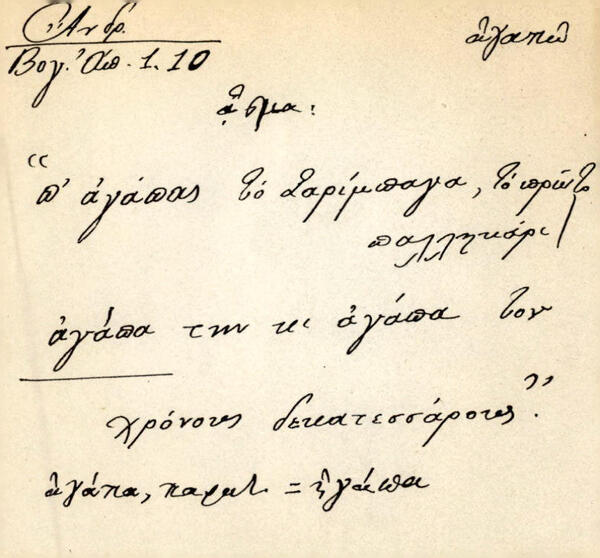 Ἄνδρ.
Βογ. Ἀπ. 1.10
ἀγαπῶ
ᾆσμα:
“π' ἀγάπας τὸ Σαρίμπαγα, τὸ πρῶτο
παλληκάρι
ἀγάπα την κι ἀγάπα τον
χρόνους δεκατεσσάρους.”
ἀγάπα, παρατ. = ἠγάπα